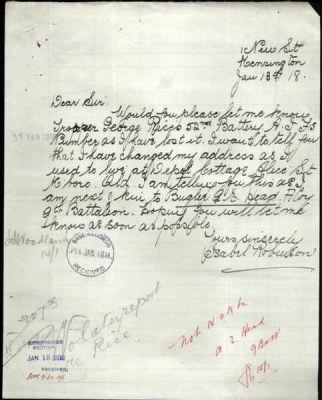 New St
Kensington
Jan 13th 18.
Dear Sir.
Would you please let me know
Trooper George Rice's 52nd Battery A.I.F's
Number as I have lost it. I want to tell you
that I have changed my address as I
used to live at Depot Cottage
and I am telling you this as I
am next of kin to Bugler A.E. Head
9th Battalion. Hoping you will let me
know as soon as possible.
Yours sincerely
Isabel
JAN 1918
RECEIVED
No later report
Rice
JAN 16 1918
RECEIVED
Not NOAH
A E Head
9 Batt